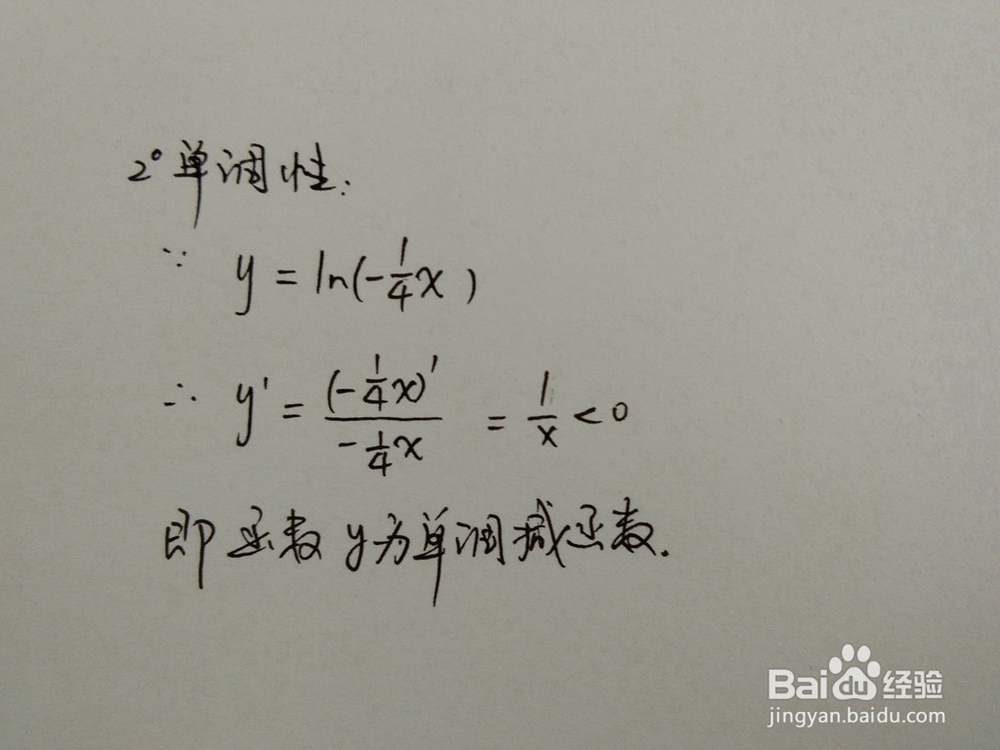 2° 单调性:
∵ y = ln(-1/4x)
∴ y' = (-1/4x)' / -1/4x = 1/x < 0
即函数y为单调减函数.
Baidu经验
jingyan.baidu.com